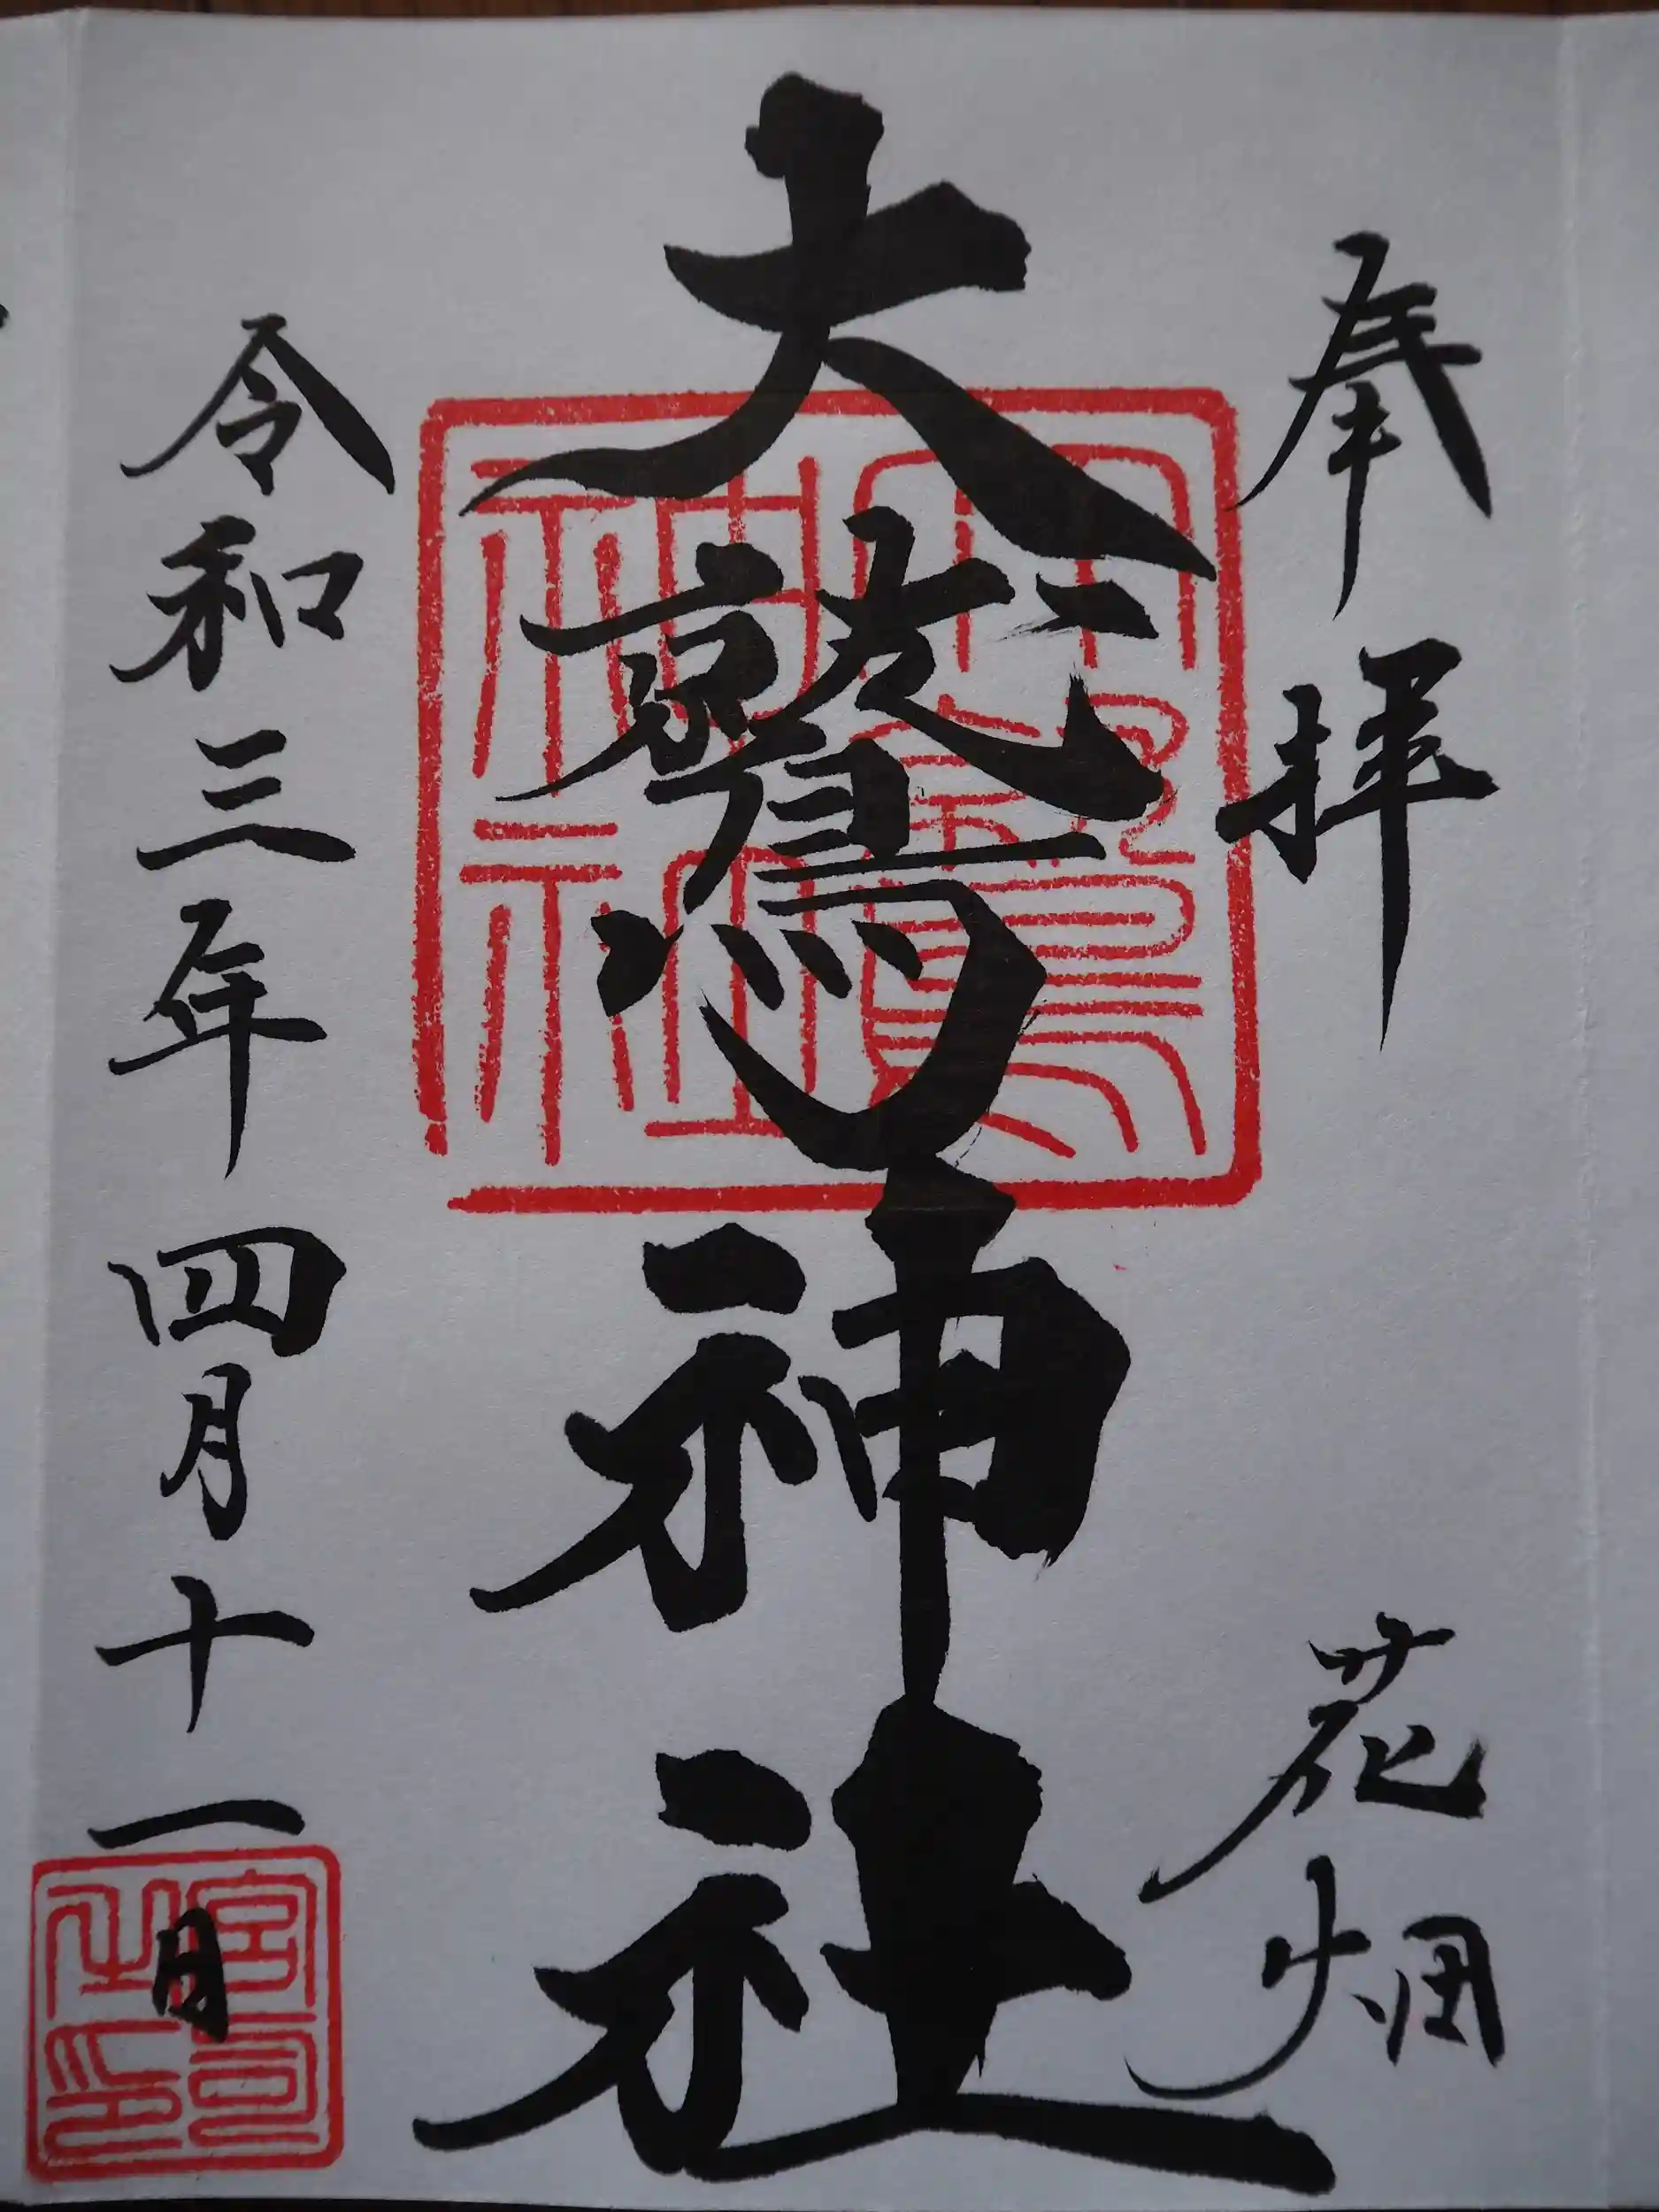 奉拝 花畑
大鷲神社
令和三年四月十一日
大鷲神社
宮司之印